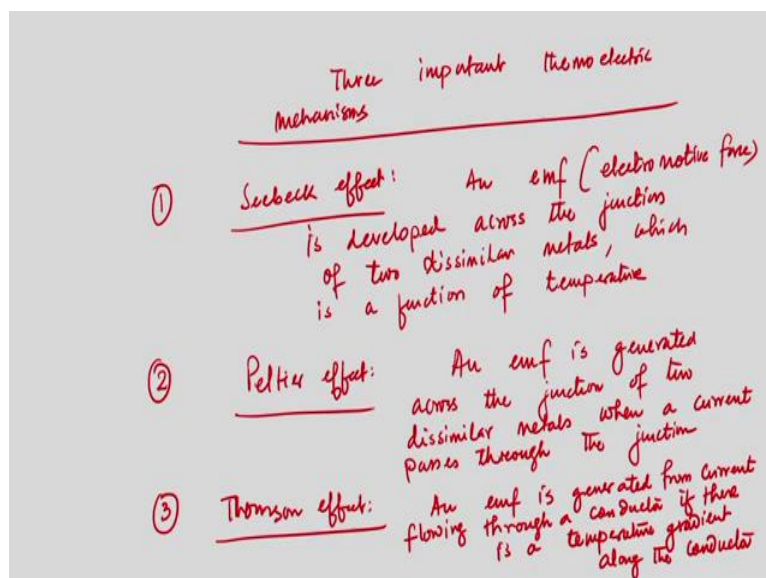 Three important themo electric
mehanisms
① Seebeck effect: An emf (electromotive force)
is developed across the junction
of two dissimilar metals, which
is a function of temperature
② Peltier effect: An emf is generated
across the junction of two
dissimilar metals when a current
passes through the junction
③ Thomson effect: An emf is generated from current
flowing through a conductor if there
is a temperature gradient
along the conductor